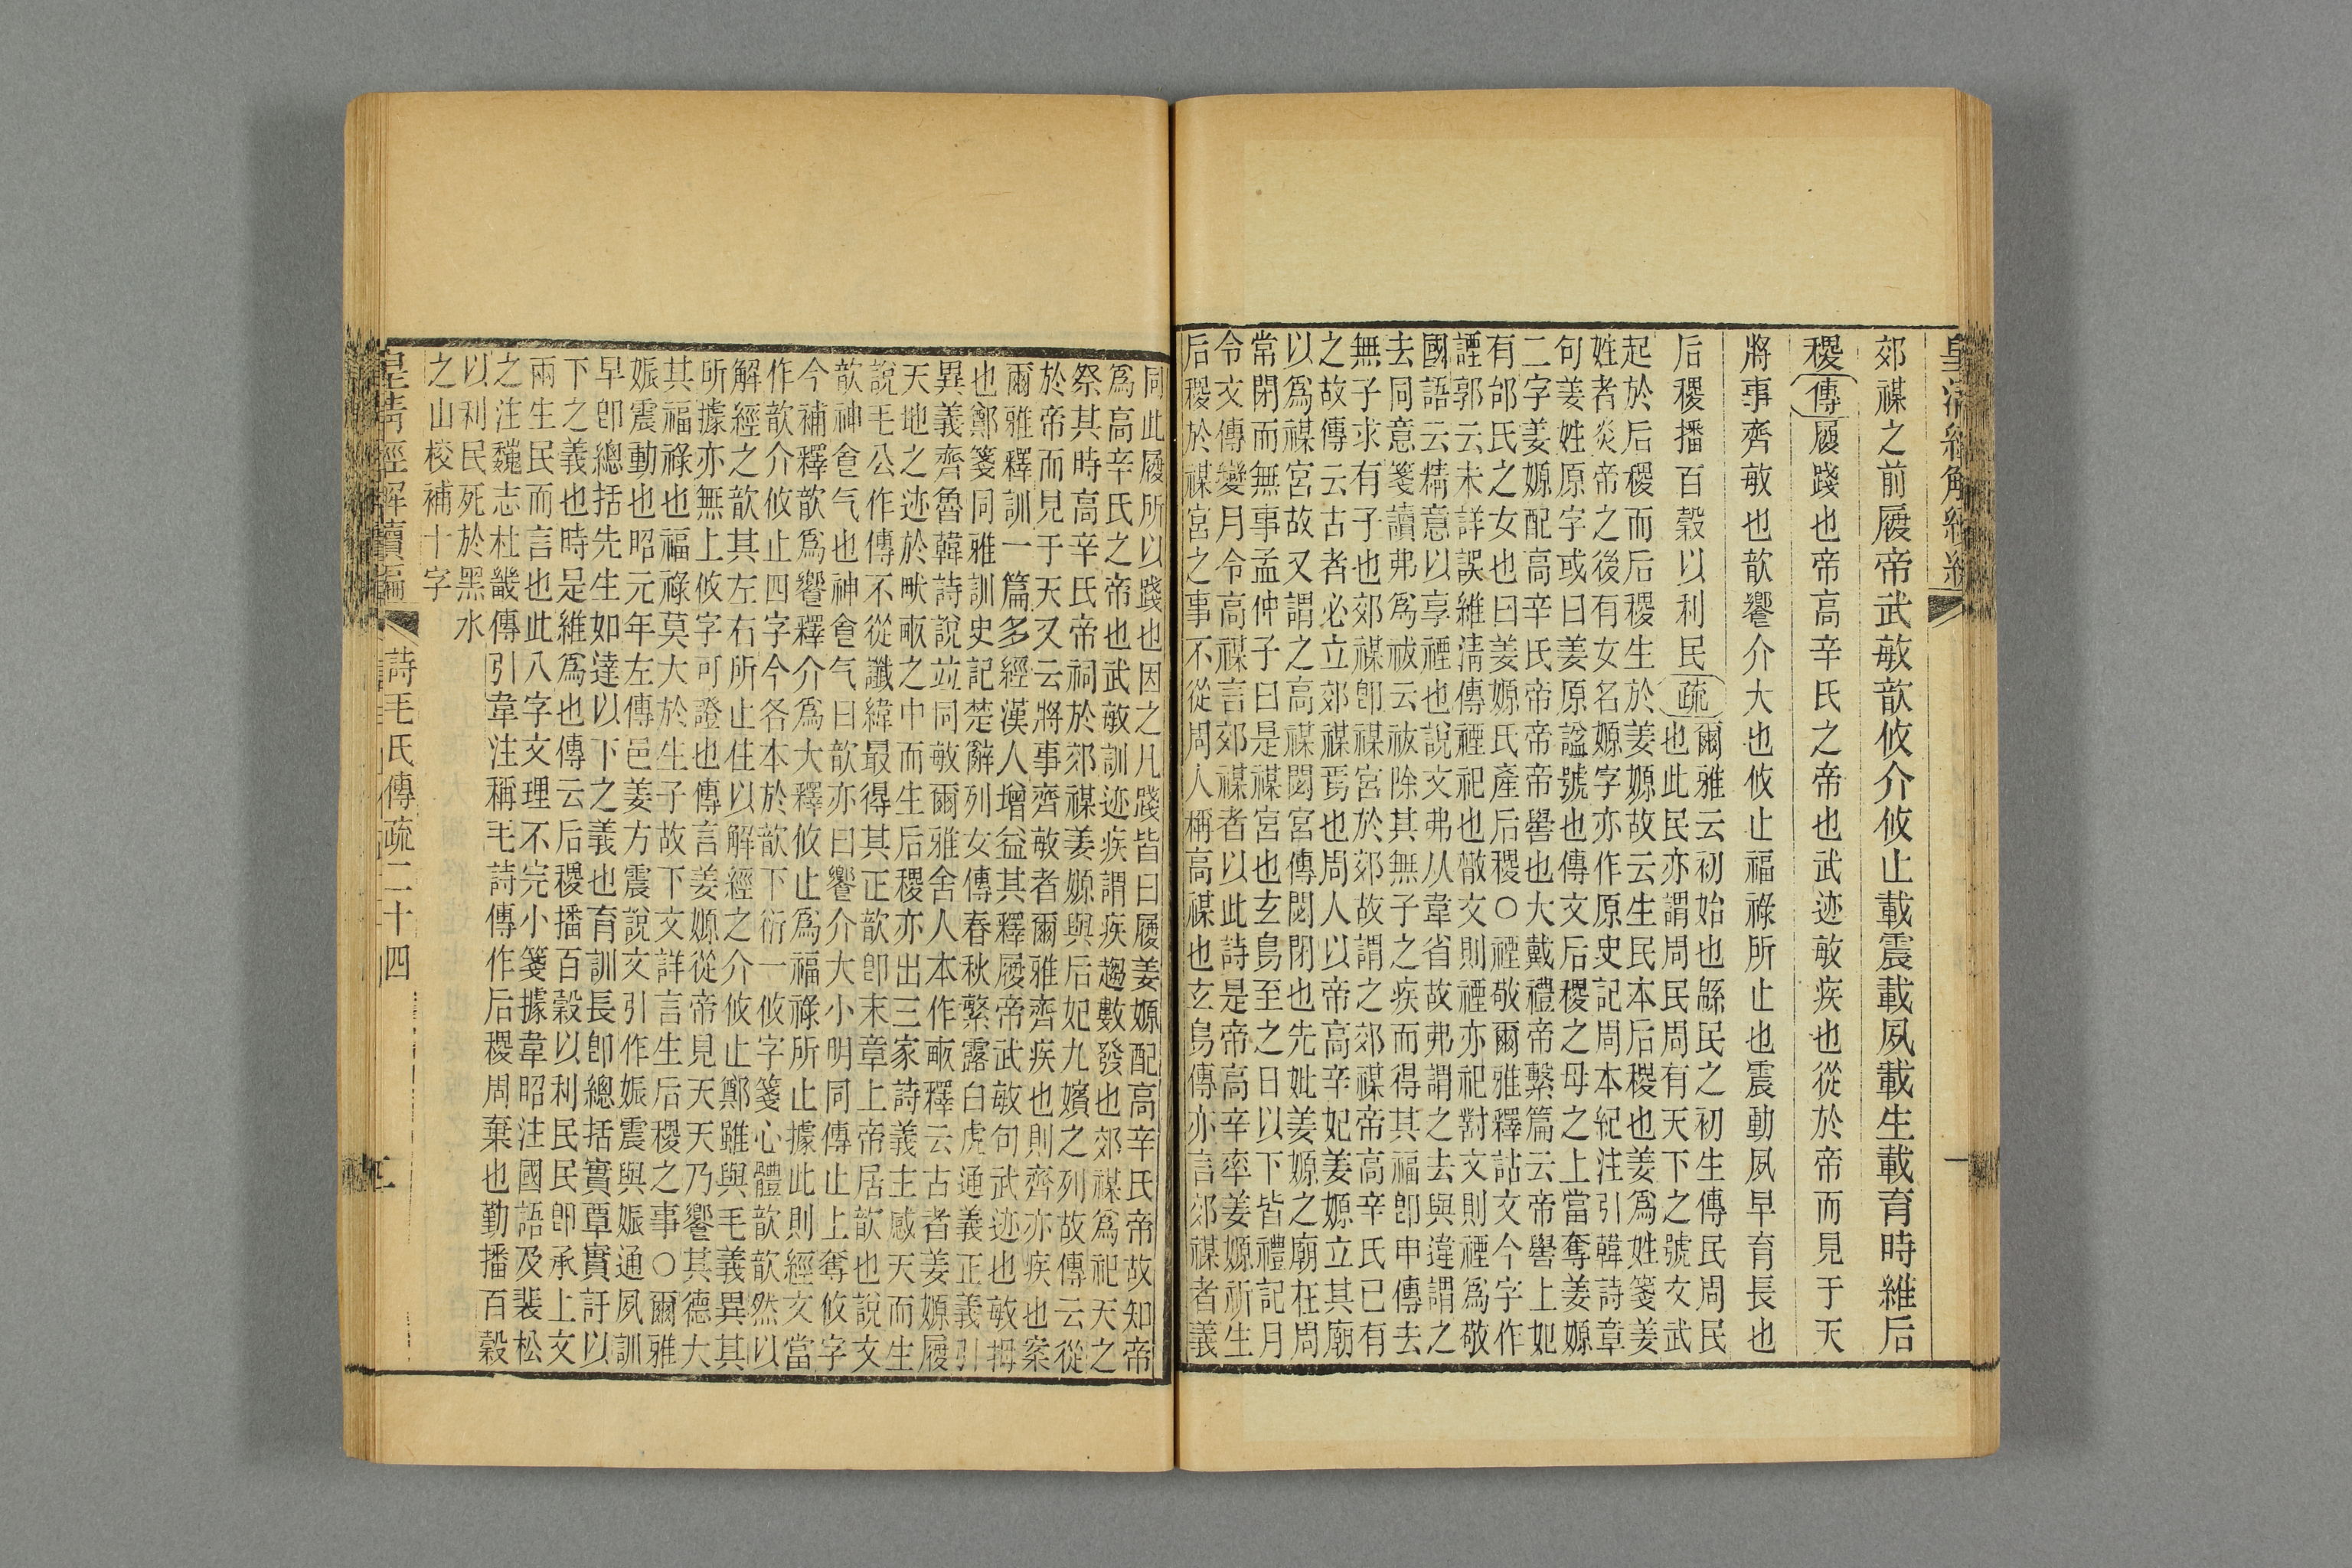 郊禖之前履帝武敏歆攸介攸止載震載夙載生載育時維后
稷傳履踐也帝高辛氏之帝也武迹敏疾也從於帝而見于天
將事齊敏也歆饗介大也攸止福祿所止也震動夙早育長也
后稷播百穀以利民疏爾雅云初始也緜民之初生傳民周民
也此民亦謂周民周有天下之號文武
起於后稷而后稷生於姜嫄故云生民本后稷也姜爲姓箋姜
姓者炎帝之後有女名嫄字亦作原史記周本紀注引韓詩章
句姜姓原字或曰姜原諡號也傳文后稷之母之上當奪姜嫄
二字姜嫄配高辛氏帝帝嚳也大戴禮帝繫篇云帝嚳上妃
有邰氏之女也曰姜嫄氏產后稷○禋敬爾雅釋詁文今字作
諲郭云未詳誤維清傳禋祀也檄文則禋亦祀對文則禋爲敬
國語云精意以享禋也說文弗从韋省故弗謂之去與違謂之
去同意箋讀弗爲祓云祓除其無子之疾而得其福卽申傳去
無子求有子也郊禖卽禖宮於郊故謂之郊禖帝高辛氏已有
之故傳云古者必立郊禖焉也周人以帝高辛妃姜嫄立其廟
以爲禖宮故又謂之高禖閟宮傳閟閉也先妣姜嫄之廟在周
常閉而無事孟仲子曰是禖宮也玄鳥至之日以下皆禮記月
令文傳變月令高禖言郊禖者以此詩是帝高辛率姜嫄祈生
后稷於禖宮之事不從周人稱高禖也玄鳥傳亦言郊禖者義
同此履所以踐也因之凡踐皆曰履姜嫄配高辛氏帝故知帝
爲高辛氏之帝也武敏訓迹疾謂疾趨數發也郊禖爲祀天之
祭其時高辛氏帝祠於郊禖姜嫄與后妃九嬪之列故傳云從
於帝而見于天又云將事齊敏者爾雅齊疾也則齊亦疾也案
爾雅釋訓一篇多經漢人增益其釋履帝武敏句武迹也敏拇
也鄭箋同雅訓史記楚辭列女傳春秋繁露白虎通義正義引
異義齊魯韓詩說竝同敏爾雅舍人本作畝釋云古者姜嫄履
天地之迹於畎畝之中而生后稷亦出三家詩義主感天而生
說毛公作傳不從讖緯最得其正歆卽末章上帝居歆也說文
歆神食气也神食气曰歆亦曰饗介大小明同傳止上奪攸字
今補釋歆爲饗釋介爲大釋攸止爲福祿所止據此則經文當
作歆介攸止四字今各本於歆下衍一攸字箋心體歆歆然以
解經之歆其左右所止住以解經之介攸止鄭雖與毛義異其
所據亦無上攸字可證也傳言姜嫄從帝見天天乃饗其德大
其福祿也福祿莫大於生子故下文詳言生后稷之事○爾雅
娠震動也昭元年左傳邑姜方震說文引作娠震與娠通夙訓
早卽總括先生如達以下之義也育訓長卽總括實覃實訏以
下之義也時是維爲也傳云后稷播百穀以利民民卽承上文
兩生民而言也此八字文理不完小箋據韋昭注國語及裴松
之注魏志杜畿傳引韋注稱毛詩傳作后稷周棄也勤播百穀
以利民死於黑水
之山校補十字
皇清經解續編　詩毛氏傳疏二十四